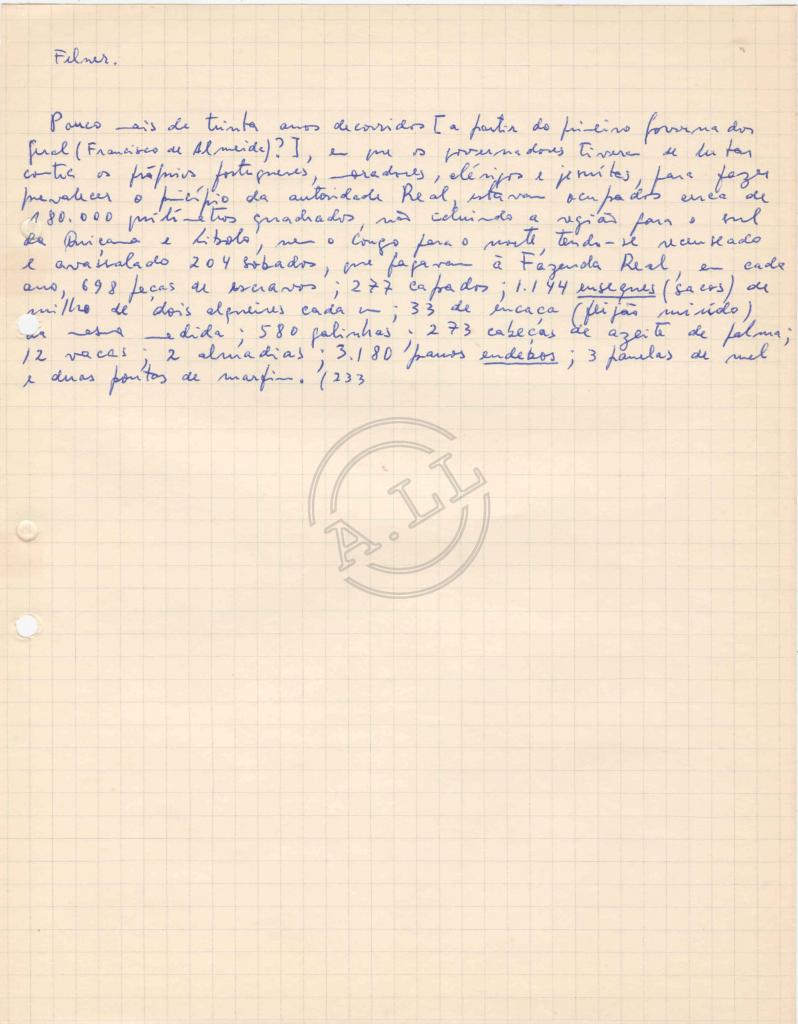 Felner.
Pouco mais de trinta anos decorridos [a partir do primeiro Governador
Geral (Francisco de Almeida)?], em que os governadores tiveram de lutar
contra os próprios portugueses, moradores, clérigos e jesuítas, para fazer
prevalecer o princípio da autoridade Real, estavam ocupados cerca de
180.000 quilómetros quadrados, não incluindo a região para o sul
da Quiçama e Libolo, nem o Congo para o norte, tendo-se recenseado
e avassalado 204 sobados, que pagavam à Fazenda Real, em cada
ano, 698 peças de escravos; 277 capados; 1.194 enseques (sacos) de
milho de dois alqueires cada um; 33 de encaça (feijão miúdo)
da mesma medida; 580 galinhas; 273 cabeças de azeite de palma;
12 vacas; 2 almadias; 3.180 panos endebos; 3 panelas de mel
e duas pontas de marfim. (233
A.LL